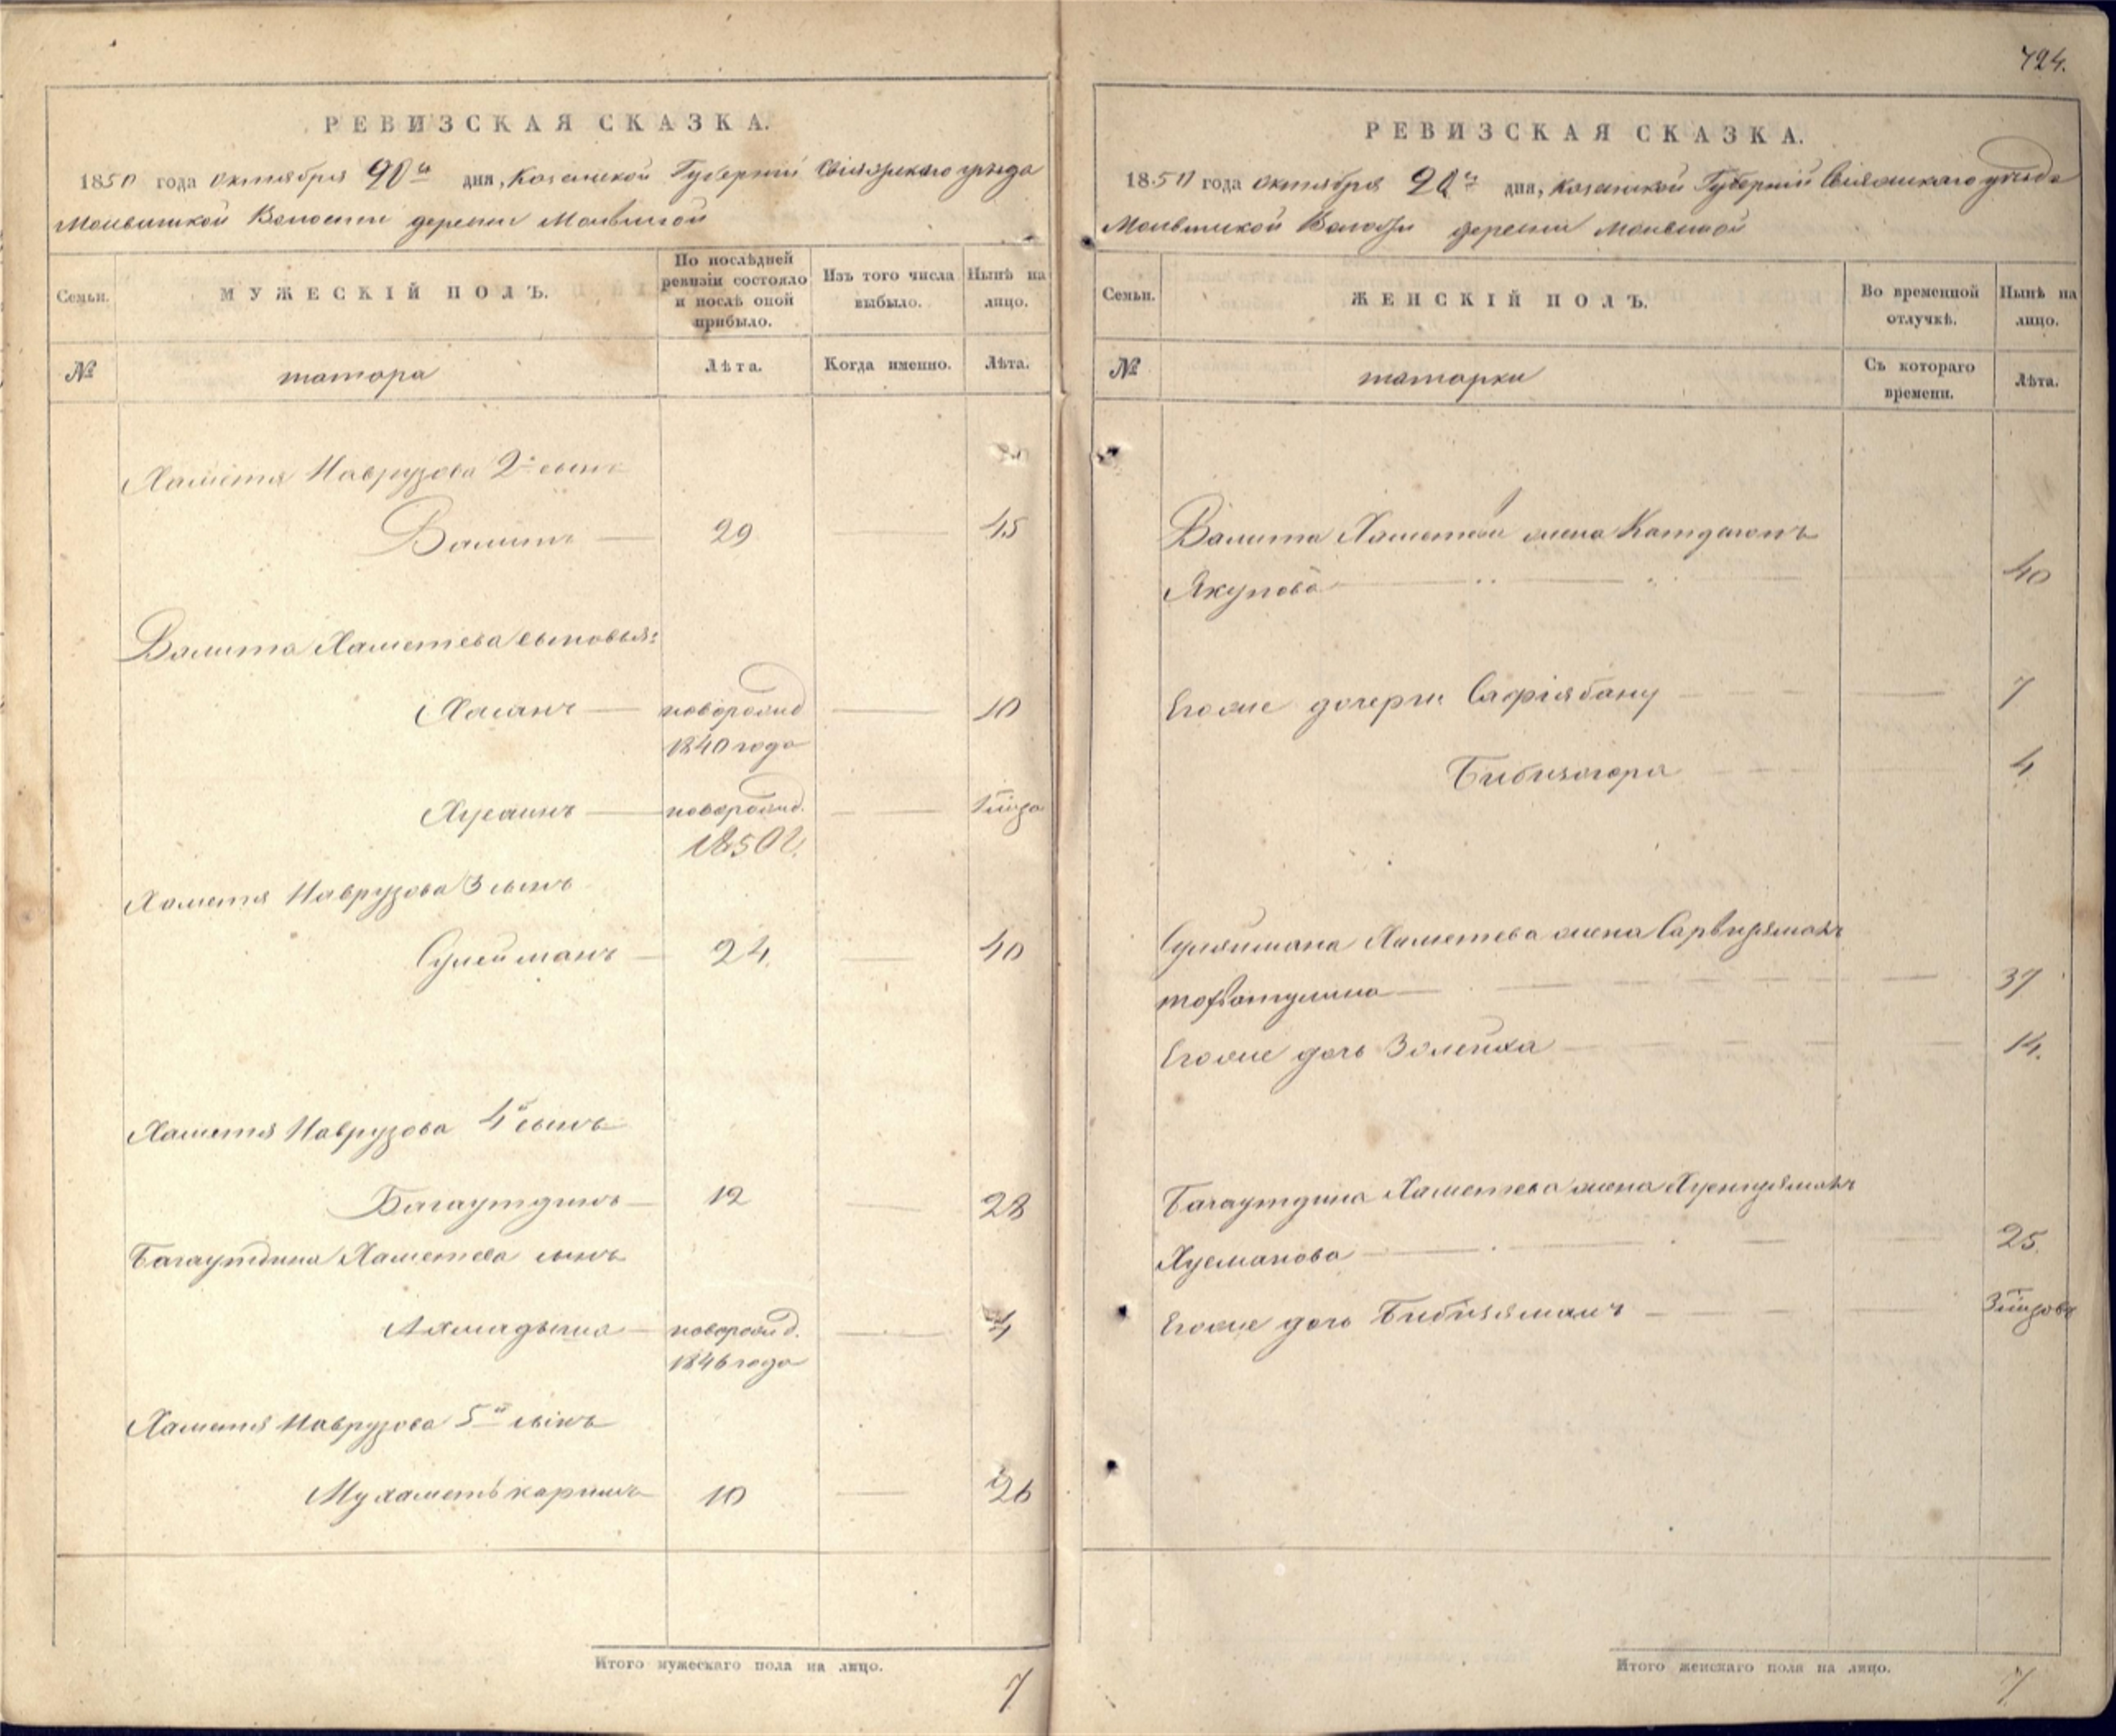 РЕВИЗСКАЯ СКАЗКА.
1850 года октября 20го дня, Казанской Губернiи Свiяжскаго уезда
Молвинской Волости деревни Молвиной
Семьи.
МУЖЕСКIЙ ПОЛЪ.
По послѣдней ревизiи состояло и послѣ оной прибыло.
Изъ того числа выбыло.
Нынѣ на лицо.
№
татара
Лѣта.
Когда именно.
Лѣта.
Хаметя Наврузова 2й сынъ
Валитъ 29 45
Валита Хаметева сыновья:
Хасанъ новорожд 10
1840 года
Хусаинъ новорожд.
1850 г.
Хаметя Наврузова 3 сынъ
Сулейманъ 24 40
Хаметя Наврузова 4й сынъ
Багаутдинъ 12 28
Багаутдина Хаметева сынъ
новорожд. 4
1846 года
Хаметя Наврузова 5й сынъ
Мухаметькаримъ 10 26
Итого мужескаго пола на лицо.
7
724.
РЕВИЗСКАЯ СКАЗКА.
1850 года октября 20го дня, Казанской Губернiй Свiяжскаго уѣзда
Молвинской Волости деревни Молвиной
Семьи.
ЖЕНСКIЙ ПОЛЪ.
Во временной отлучкѣ.
Нынѣ на лицо.
№
татарки
Съ котораго времени.
Лѣта.
Валита Хаметева жена
Якупова 40
Егоже дочери Сафiябану 7
4
Сулеймана Хаметева жена
37
Егоже дочь Золейха 14.
Багаутдина Хаметева жена
Хусманова 25.
Егоже дочь Бибиямалъ
Итого женскаго пола на лицо.
7